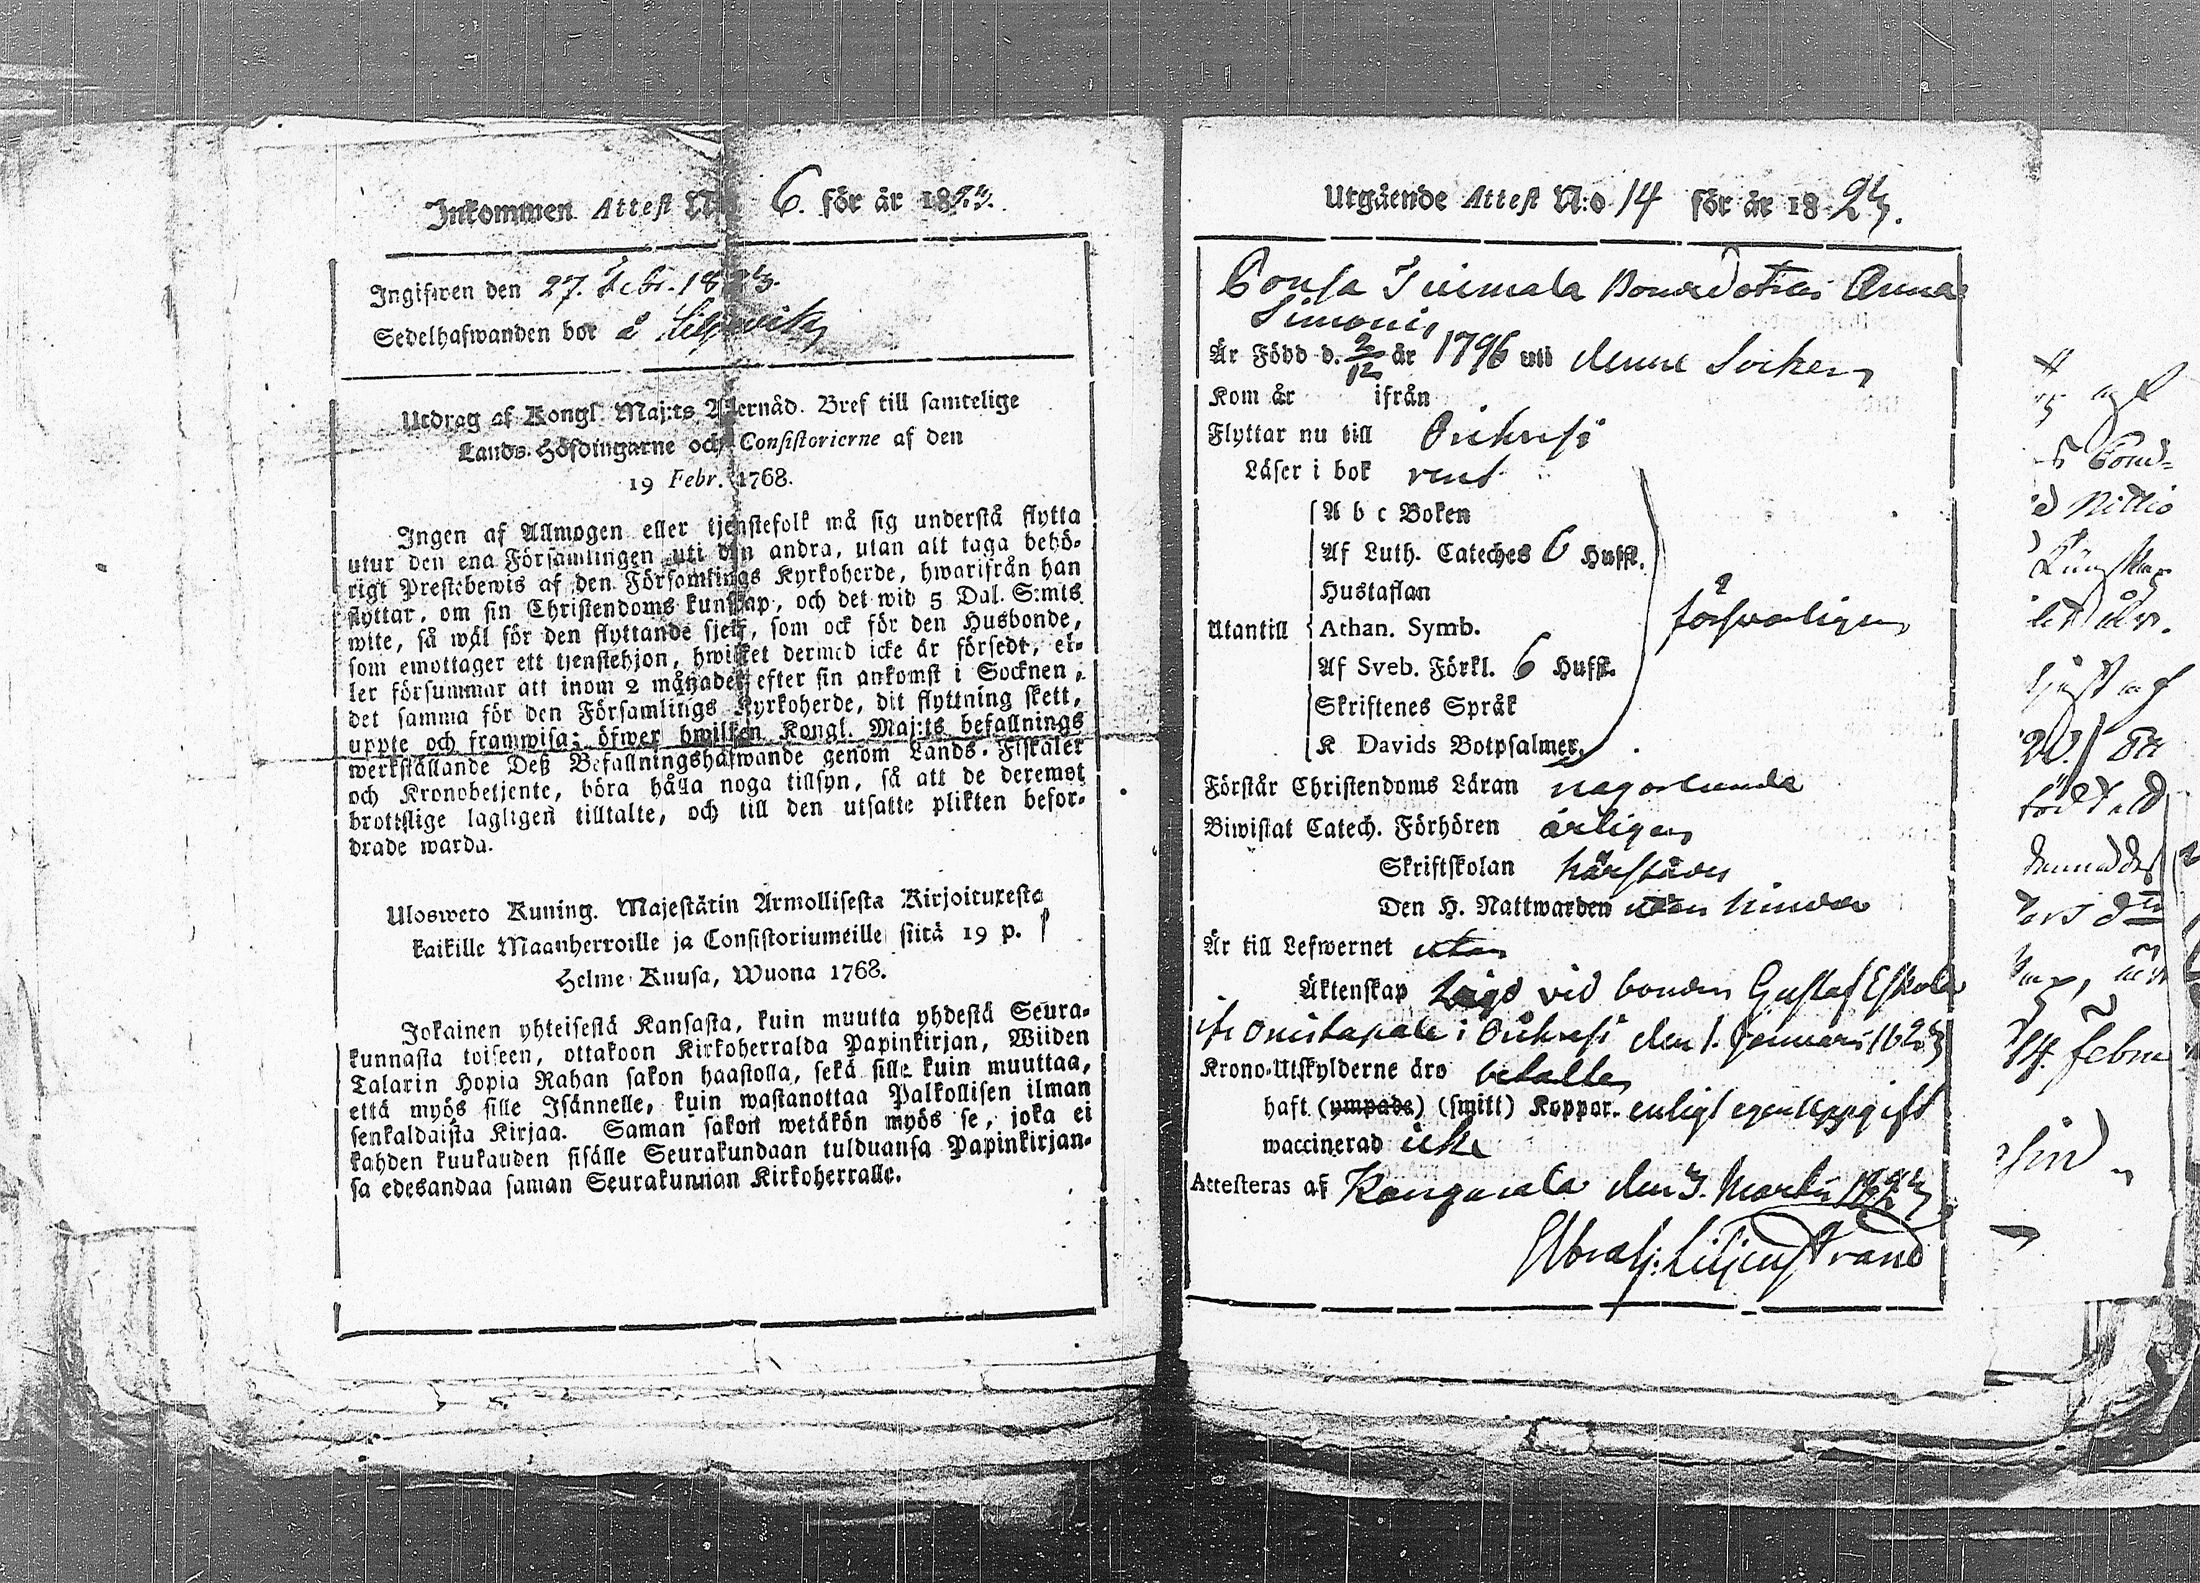 Inkommen Attest N:o 6. för år 1823.
Ingifwen den 27. Febr. 1823.
Sedelhafwanden bor å
Utdrag af Kongl. Maj:ts Allernåd. Bref till samtelige
Lands-Höfdingarne och Consistorierne af den
19 Febr. 1768.
Ingen af Allmogen eller tjenstefolk må sig understå flytta
utur den ena Församlingen uti den andra, utan att taga behö-
rigt Prestebewis af den Församlings Kyrkoherde, hwarifrån han
flyttar, om sin Christendoms kunskap, och det wid 5 Dal. S:mts
wite, så wäl för den flyttande sjelf, som ock för den Husbonde,
som emottager ett tjenstehjon, hwilket dermed icke är försedt, el-
ler försummar att inom 2 månader efter sin ankomst i Socknen,
det samma för den Församlings Kyrkoherde, dit flyttning skett,
uppte och framwisa; öfwer hwilken Kongl. Maj:ts befallnings
werkställande Deß Befallningshafwande genom Lands-Fiskaler
och Kronobetjente, böra hålla noga tillsyn, så att de deremot
brottslige lagligen tilltalte, och till den utsatte plikten befor-
drade warda.
Ulosweto Kuning. Majestätin Armollisesta Kirjoituxesta
kaikille Maanherroille ja Consistoriumeille siitä 19 p.
Helme-Kuusa, Wuona 1768.
Jokainen yhteisestä Kansasta, kuin muutta yhdestä Seura-
kunnasta toiseen, ottakoon Kirkoherralda Papinkirjan, Wiiden
Talarin Hopia Rahan sakon haastolla, sekä sille kuin muuttaa,
että myös sille Isännelle, kuin wastanottaa Palkollisen ilman
senkaldaista Kirjaa. Saman sakon wetäkön myös se, joka ei
kahden kuukauden sisälle Seurakundaan tulduansa Papinkirjan-
sa edesandaa saman Seurakunnan Kirkoherralle.
Utgående Attest N:o 14 för år 1823.
Bondedottren Anna
Är Född d. 2/12 år 1796 uti denne Socken
Kom år ifrån
Flyttar nu till Orihvesi
Läser i bok rent
A b c Boken
Af Luth. Cateches 6 Hufst.
Hustaflan
Utantill Athan. Symb. försvarligen
Af Sveb. Förkl. 6 Hufst.
Skriftenes Språk
K Davids Botpsalmer
Förstår Christendoms Läran någorlunda
Biwistat Catech. Förhören årligen
Skriftskolan härstädes
Den H. Nattwarden utan hinder
Är till Lefwernet utan
Äktenskap lagd vid bonden Gustaf Eskola
i Orihvesi den 1. Januari 1823
Krono-Utskylderne äro betalte
haft (ympade) (smitt) Koppor. enligt egen uppgift
waccinerad icke
Attesteras af Kangasala den 3. Martii 1823
Abrah: Liljenstrand